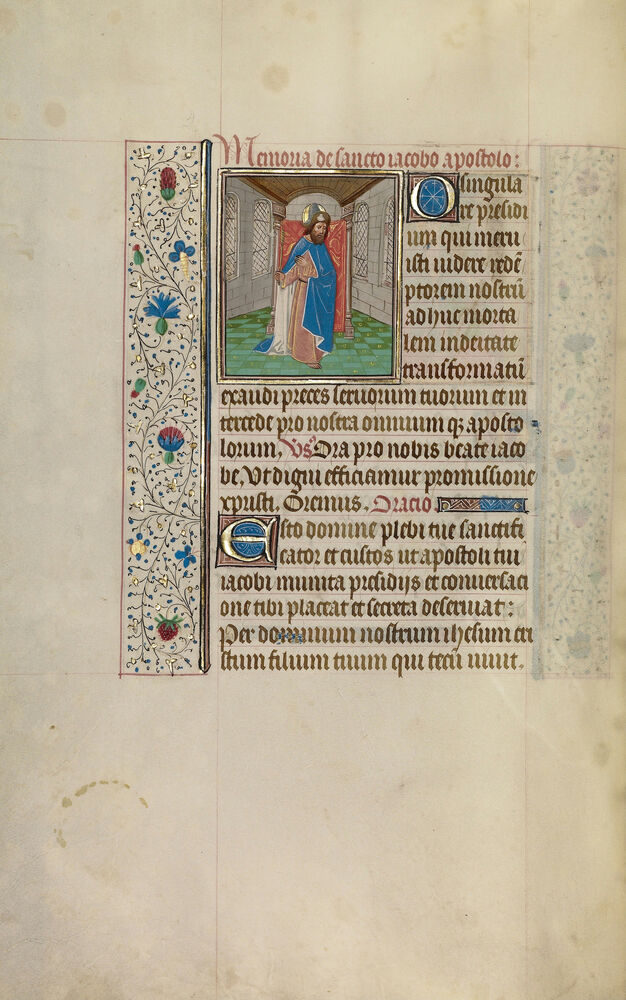 Memoria de sancto iacobo apostolo:
O singula
re presidi
um qui meru
isti videre redē
ptorem nostrū
adhuc morta
lem indeitate
transformatū
exaudi preces servorum tuorum et in
tercede pro nostra omnium qz aposto
lorum, Vs Ora pro nobis beate iaco
be, Vt digni efficiamur promissione
xpristi. Oremus. Oracio
Esto domine plebi tue sanctifi
cator et custos ut apostoli tui
iacobi munita presidijs et conversaci
one tibi placeat et secura deserviat:
Per dominum nostrum ihesum cri
stum filium tuum qui tecū vivit.